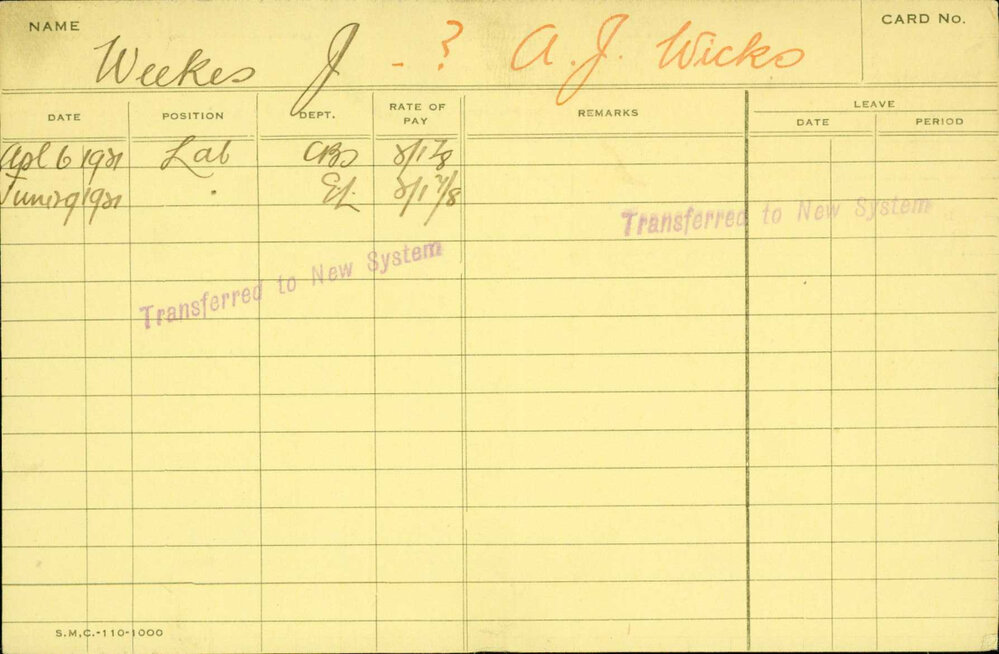 NAME Weekes J - ? A. J. Wicks CARD No.
DATE POSITION DEPT. RATE OF PAY REMARKS LEAVE
DATE PERIOD
Apl 6 1921 Lab CBS
June 29 1921 " EL
Transferred to New System
Transferred to New System
S.M.C.-110-1000